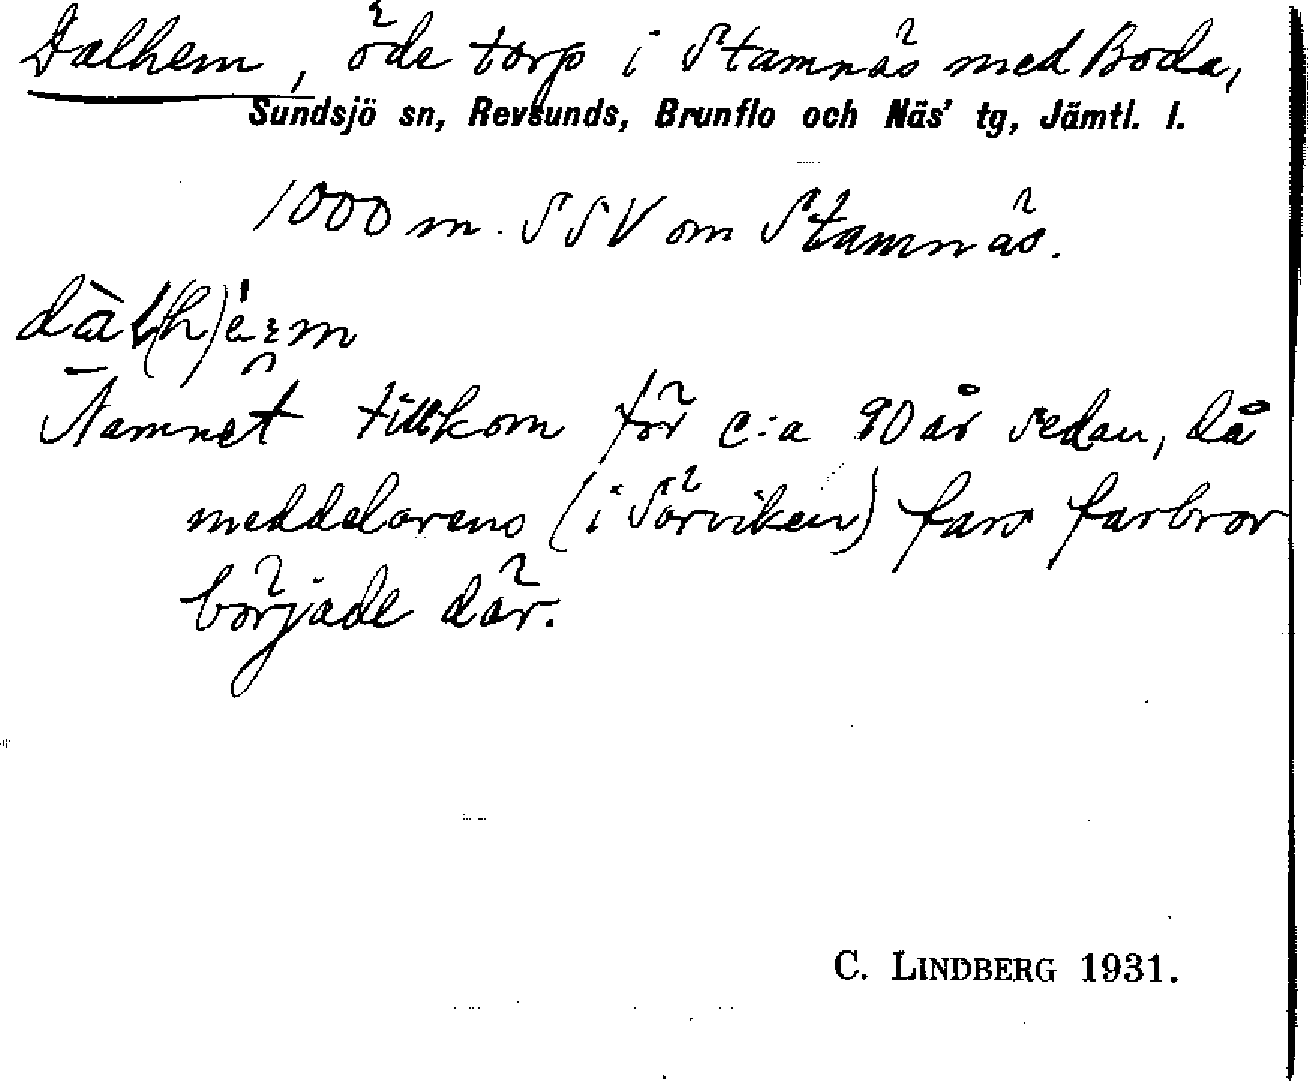 Dalhem, öde torp i Stamnäs med Boda,
Sundsjö sn, Revsunds, Brunflo och Näs' tg, Jämtl. l.
1000 m. SSV om Stamnäs.
Namnet tillkom för c:a 90 år sedan, då
meddelarens (i Sörviken) fars farbror
började där.
C. LINDBERG 1931.